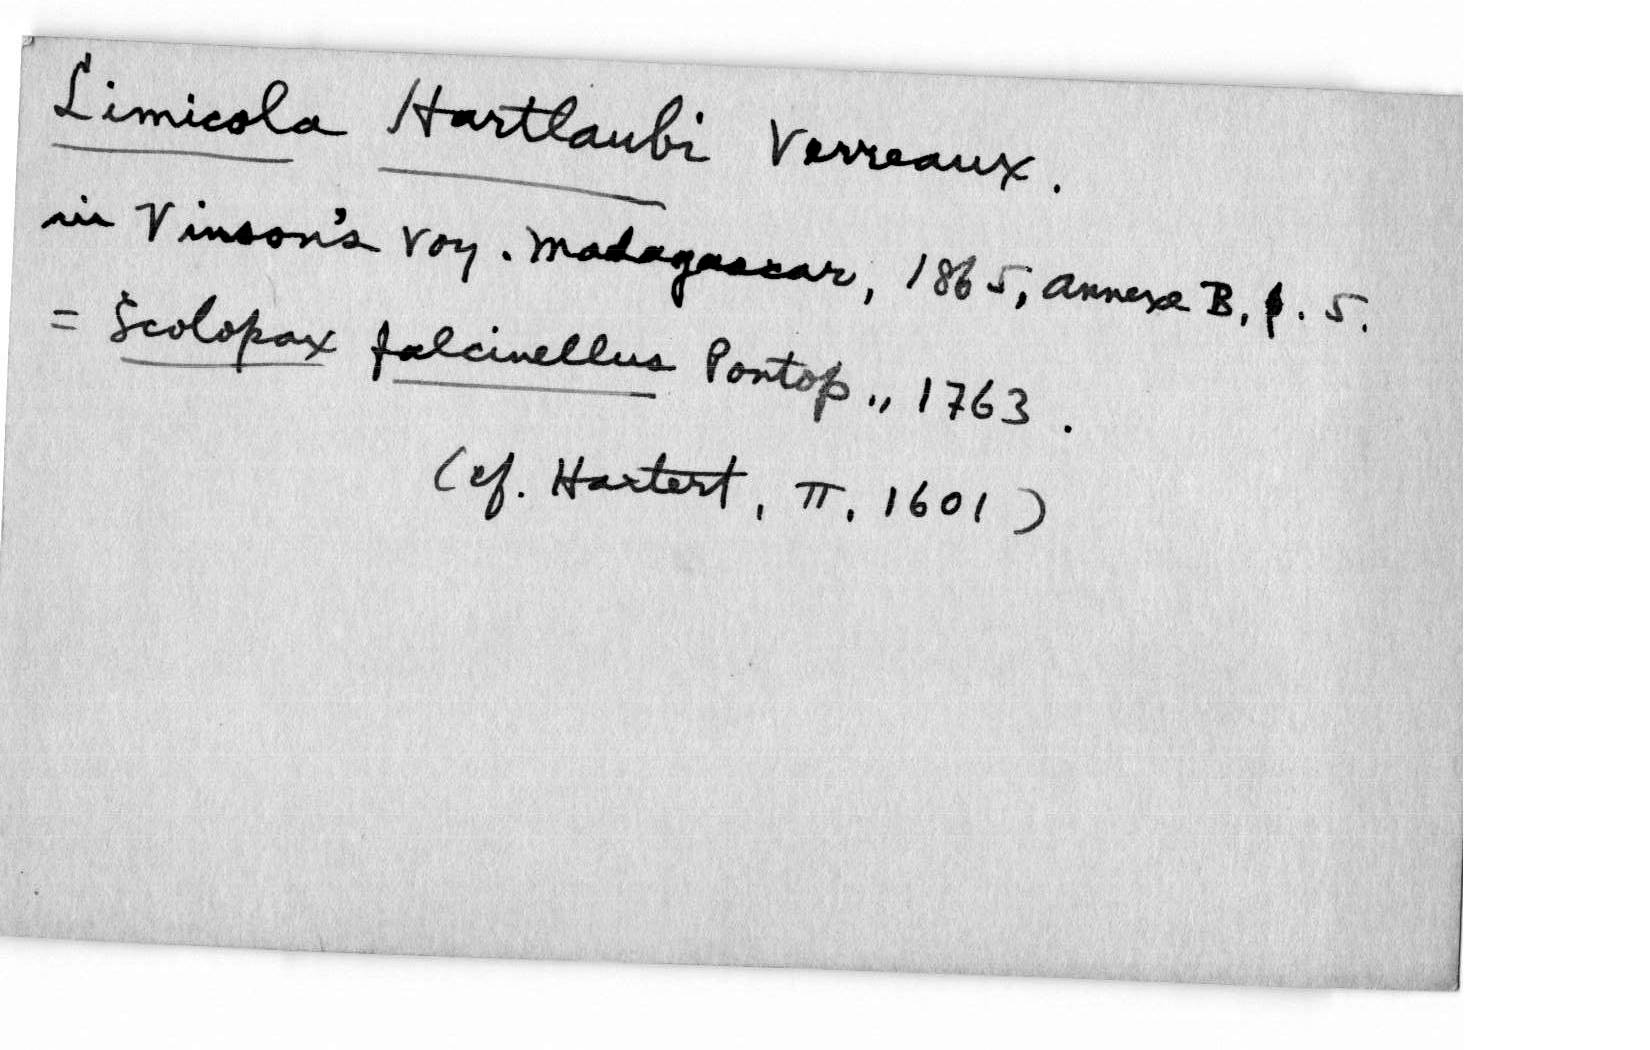 Limicola Hartlaubi Verreaux.
in Vinson's Voy. Madagascar, 1865, annexe B, p. 5.
= Scolopax falcinellus Pontop., 1763.
(cf. Hartert, II, 1601)